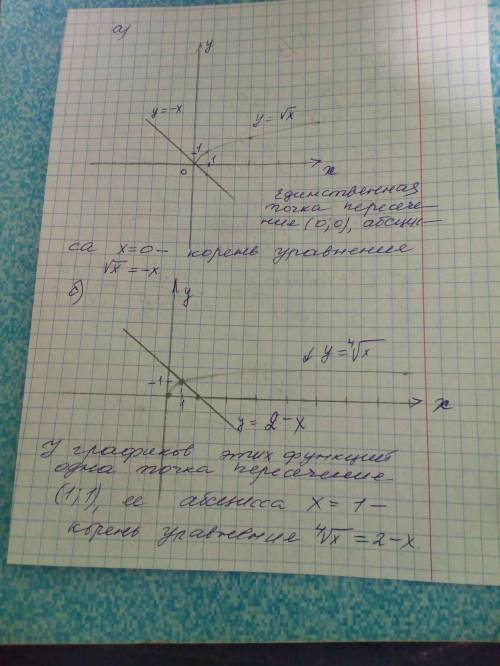 а)
y
y=-x
y=√x
1
1
0
x
Единственная
точка пересече-
ние (0;0), абсцис-
са x=0 - корень уравнение
√x=-x
б)
y
y=⁴√x
1
1
x
y=2-x
У графиков этих функций
одна точка пересечение
(1;1), ее абсцисса x=1-
корень уравнение ⁴√x=2-x.